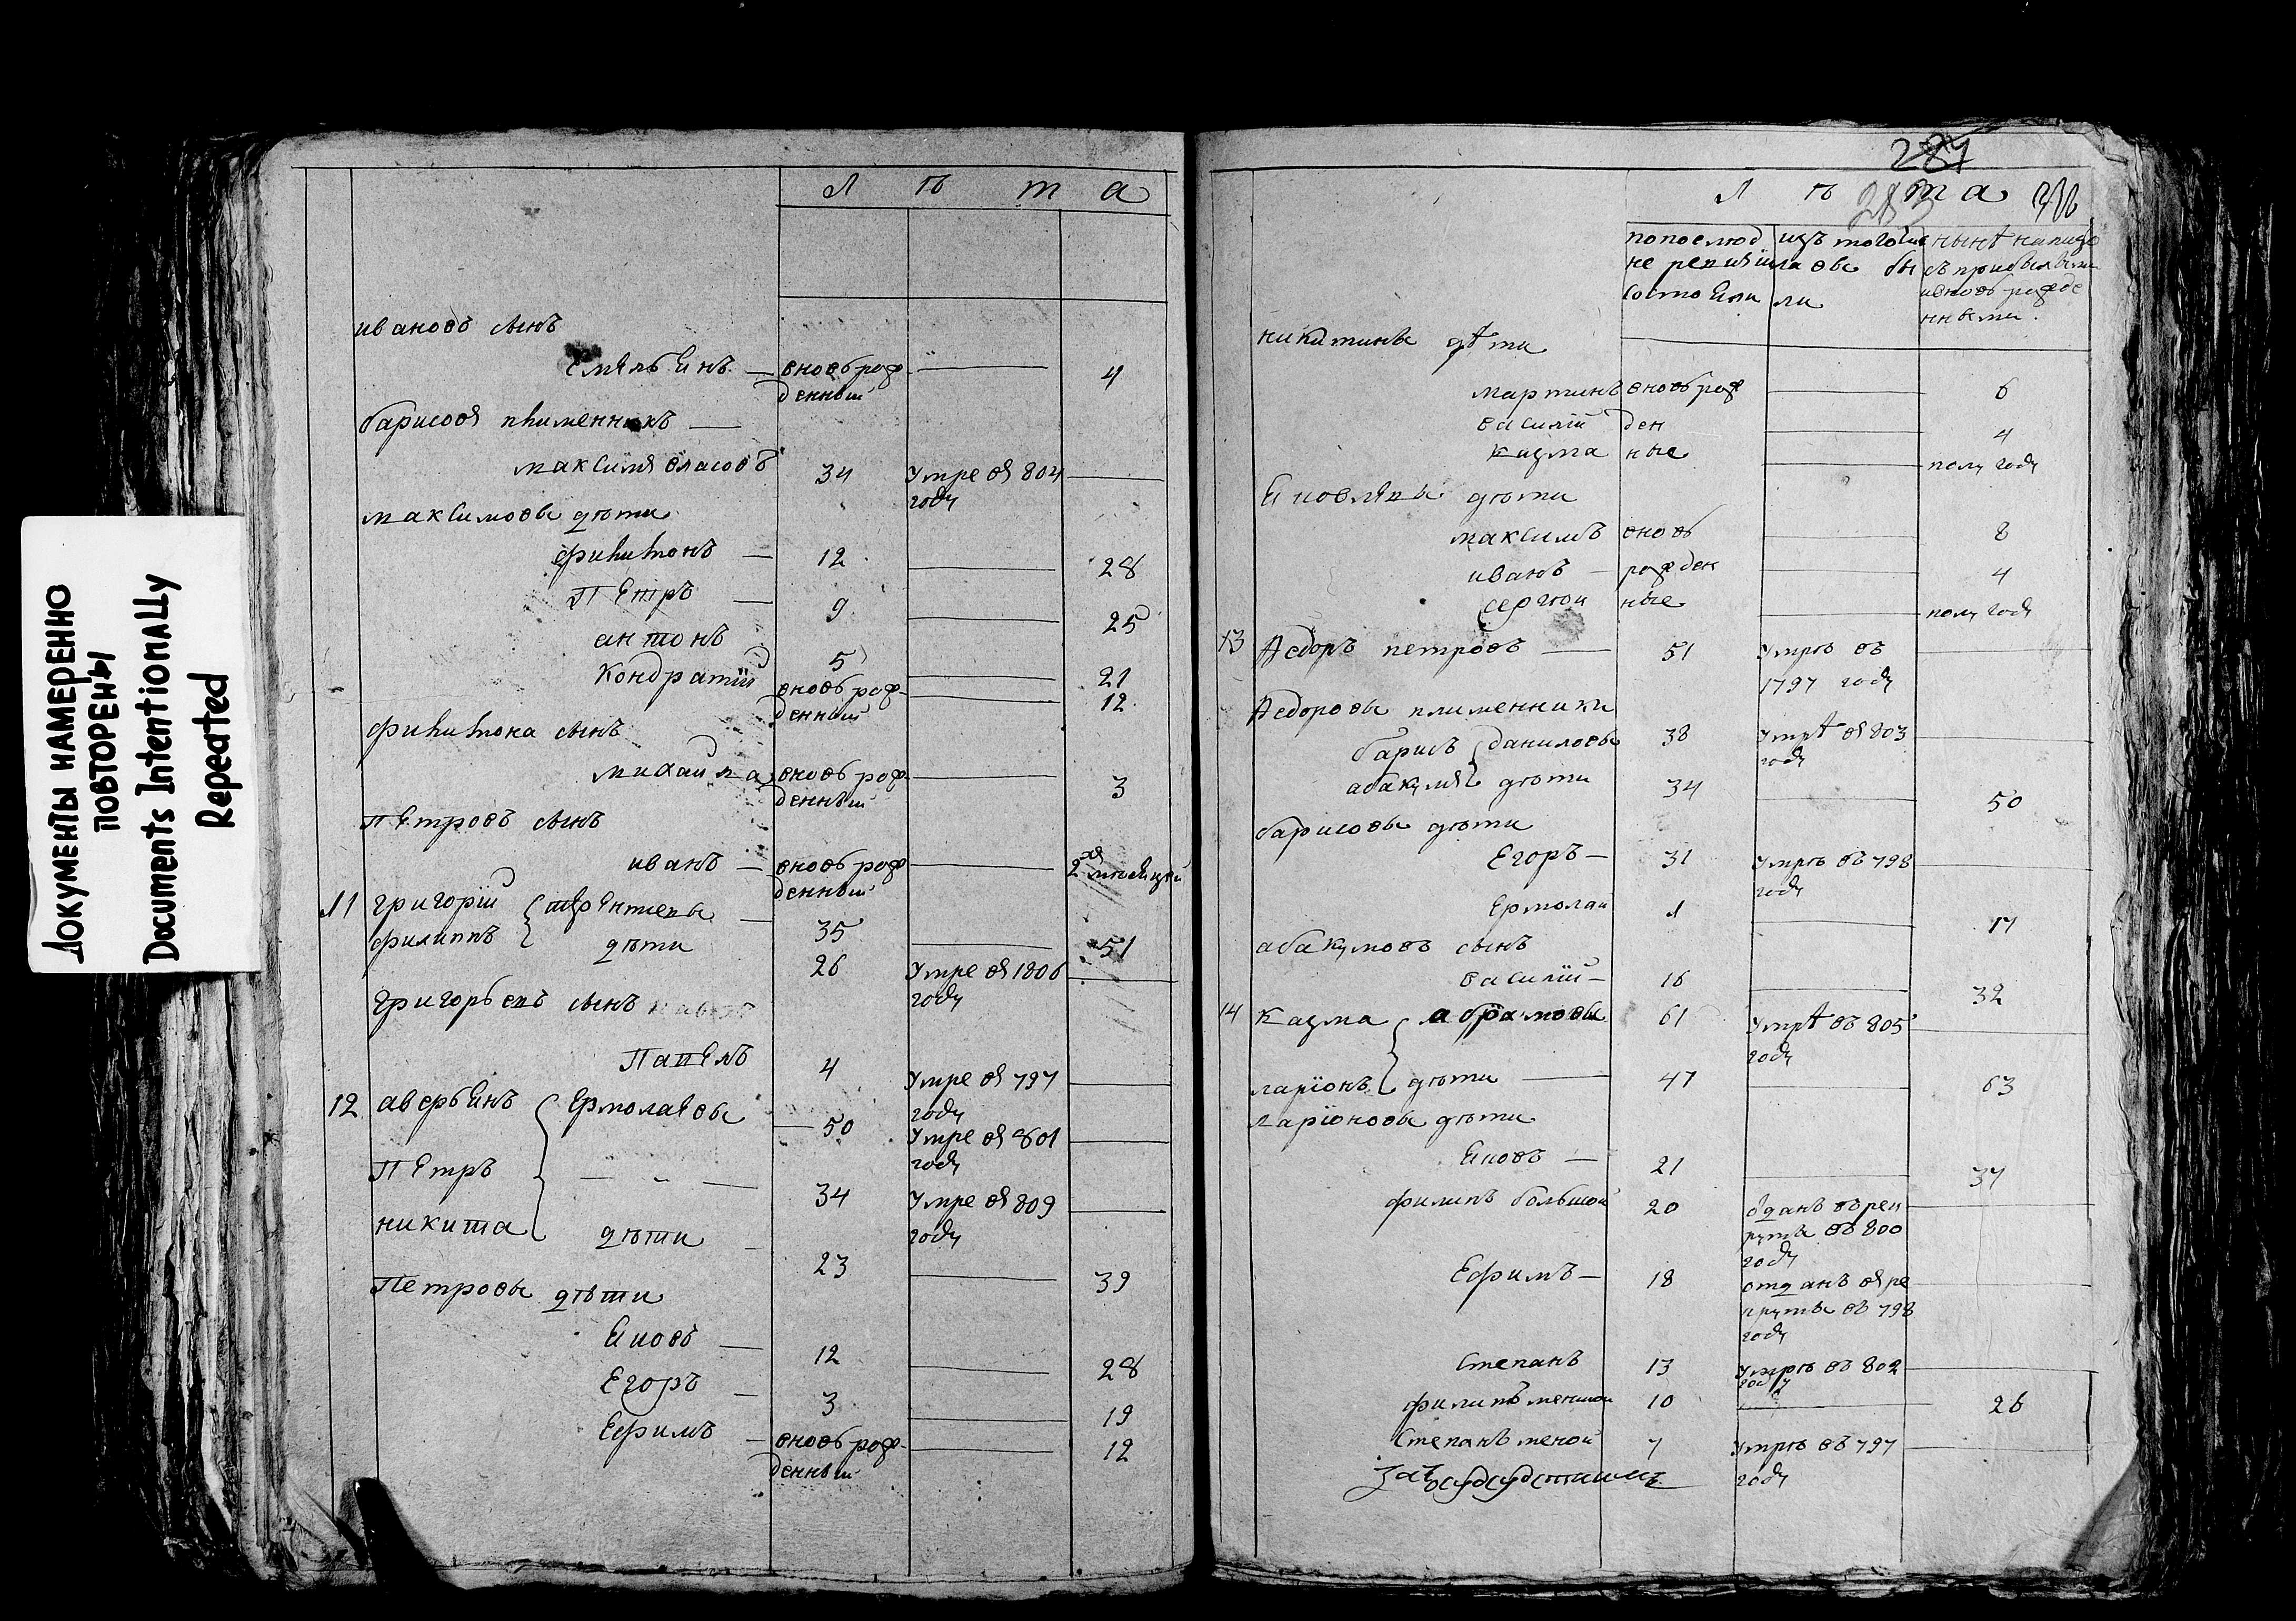 ДОКУМЕНТЫ НАМЕРЕННО
ПОВТОРЕНЫ
Documents Intentionally
Repeated
Л ѣ т а
ивановъ сынъ
Емельянъ — вновьрож
денный — 4
барисовъ плименникъ —
максимъ власовъ 34 умре въ 804 —
году
максимовы дѣти
филипонъ — 12 — 28
Петръ — 9 — 25
антонъ 5 — 21
Кондратий вновьрож — 12
денный
филипона сынъ
михаила вновьрож — 3
денный
Петровъ сынъ
иванъ — вновьрож — 2хъ месяцей
денный
11 григорий терентьевы — 35 — 51
филиппъ дѣти 26 умре въ 1806 —
году
григорьевъ сынъ
Павелъ 4 умре въ 797 —
году
12 аверьянъ Ермолаевы — 50 умре въ 801 —
году
Петръ — 34 умре въ 809 —
году
никита дѣти — 23 — 39
Петровы дѣти
Иовъ — 12 — 28
Егоръ — 3 — 19
Ефимъ — вновьрож — 12
денный
287
283
Л ѣ т а
попослюд изъ тогочис нынѣ налицо
не ревизии ла вы бы съ прибылыми
состояли ли ивновь рожде
нными.
никитины дѣти
мартинъ вновьрож — 6
василий ден — 4
казма ные — полу году
Иовлевы дѣти
максимъ вновь — 8
иванъ — рожден — 4
сергюй ные — полу году
13 Федоръ петровъ — 51 умрѣ въ —
1797 году
Федоровы плименники
барисъ даниловы 38 умрѣ въ 803 —
году
абакумъ дѣти 34 — 50
барисовы дѣти
Егоръ — 31 умрѣ въ 798 —
году
Ермолай 1 — 17
абакумовъ сынъ
василий — 16 — 32
14 казма абрамовы 61 умрѣ въ 805 —
году
ларионъ дѣти — 47 — 63
ларионовы дѣти
Иовъ — 21 — 37
филипъ большой 20 одданъ въ рек —
руты въ 800
году
Ефимъ — 18 отданъ въ ре —
круты въ 798
году
Степанъ 13 умрѣ въ 802 —
году
филипъ меншой 10 — 26
Степанъ меной 7 умрѣ въ 797 —
году